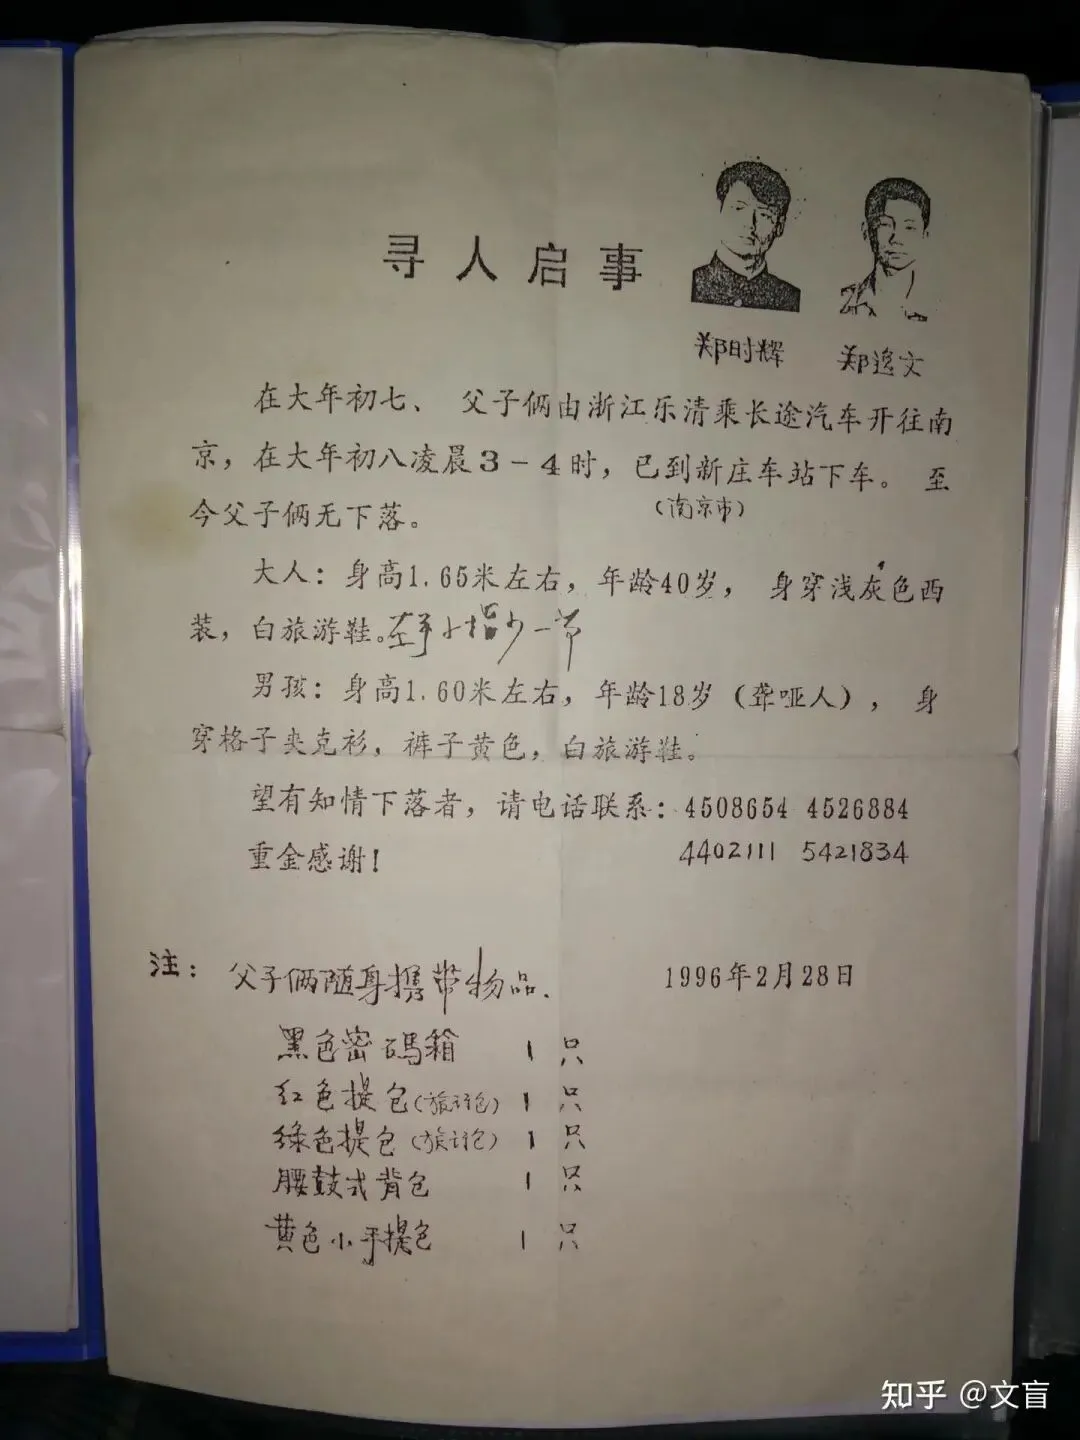 寻人启事
郑时辉 郑逸文
在大年初七、父子俩由浙江乐清乘长途汽车开往南
京，在大年初八凌晨3-4时，已到新庄车站下车。至
(南京市)
今父子俩无下落。
大人：身高1.65米左右，年龄40岁，身穿浅灰色西
装，白旅游鞋。左手小指少一节
男孩：身高1.60米左右，年龄18岁（聋哑人），身
穿格子夹克衫，裤子黄色，白旅游鞋。
望有知情下落者，请电话联系：4508654 4526884
重金感谢！ 4402111 5421834
1996年2月28日
注：父子俩随身携带物品.
黑色密码箱 1只
红色提包(旅行包) 1只
绿色提包(旅行包) 1只
腰鼓式背包 1只
黄色小手提包 1只
知乎 @文盲